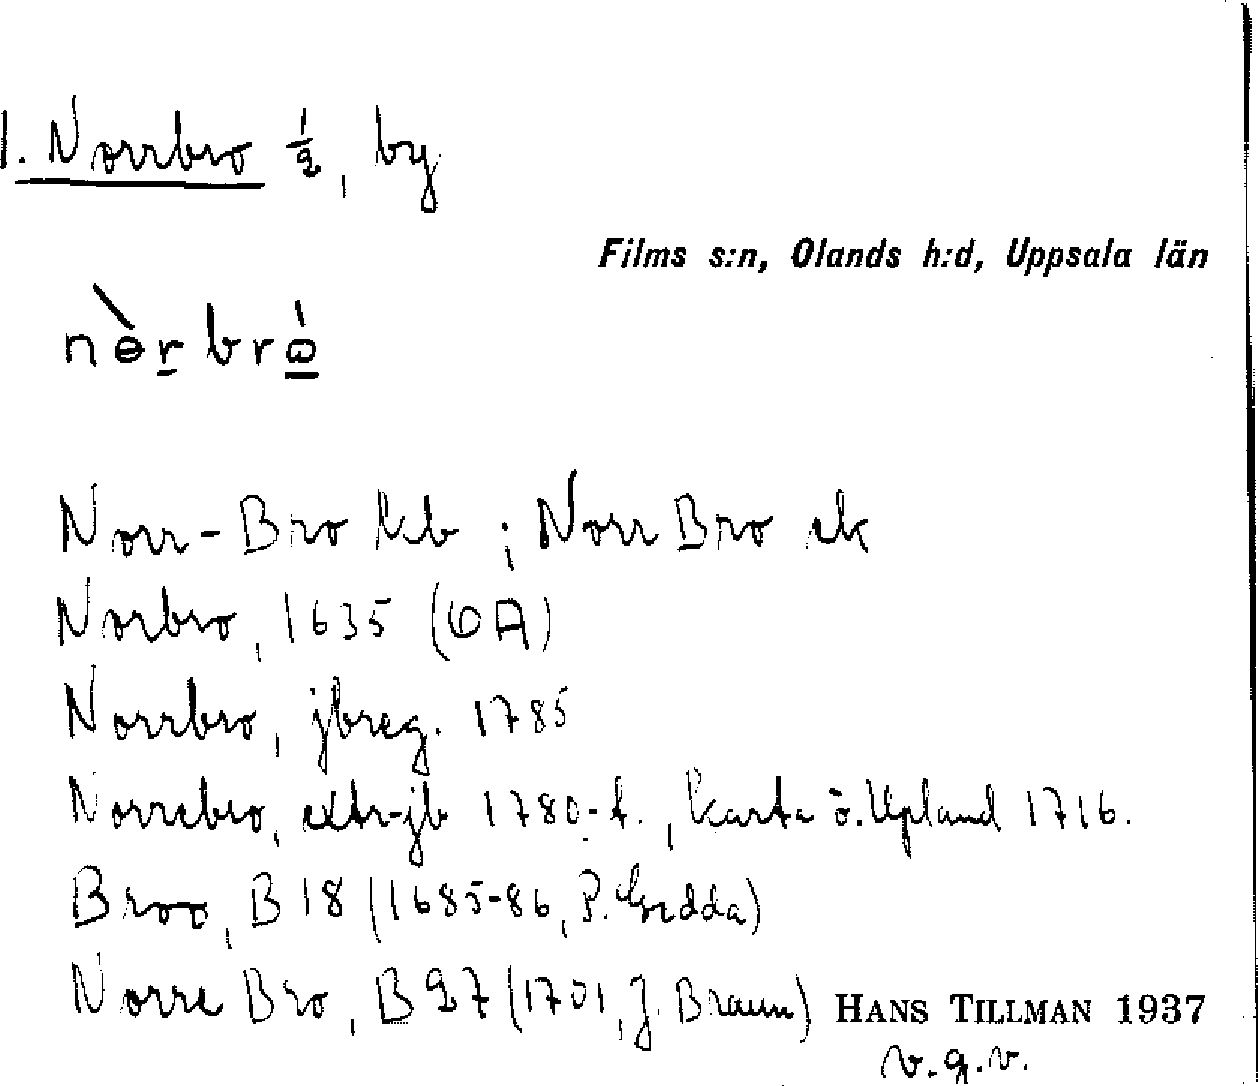 1. Norrbro 1/2, by
Films s:n, Olands h:d, Uppsala län
nèrbrò
Norr-Bro kb; Norr Bro ek
Norbro, 1635 (6A)
Norrbro, jbreg. 1785
Norrebro, extr-jb 1780-t., Karta ö. Upland 1716.
Broo, B 18 (1685-86, P. Gedda)
Norre Bro, B 27 (1701, J. Braun) HANS TILLMAN 1937
v.g.v.